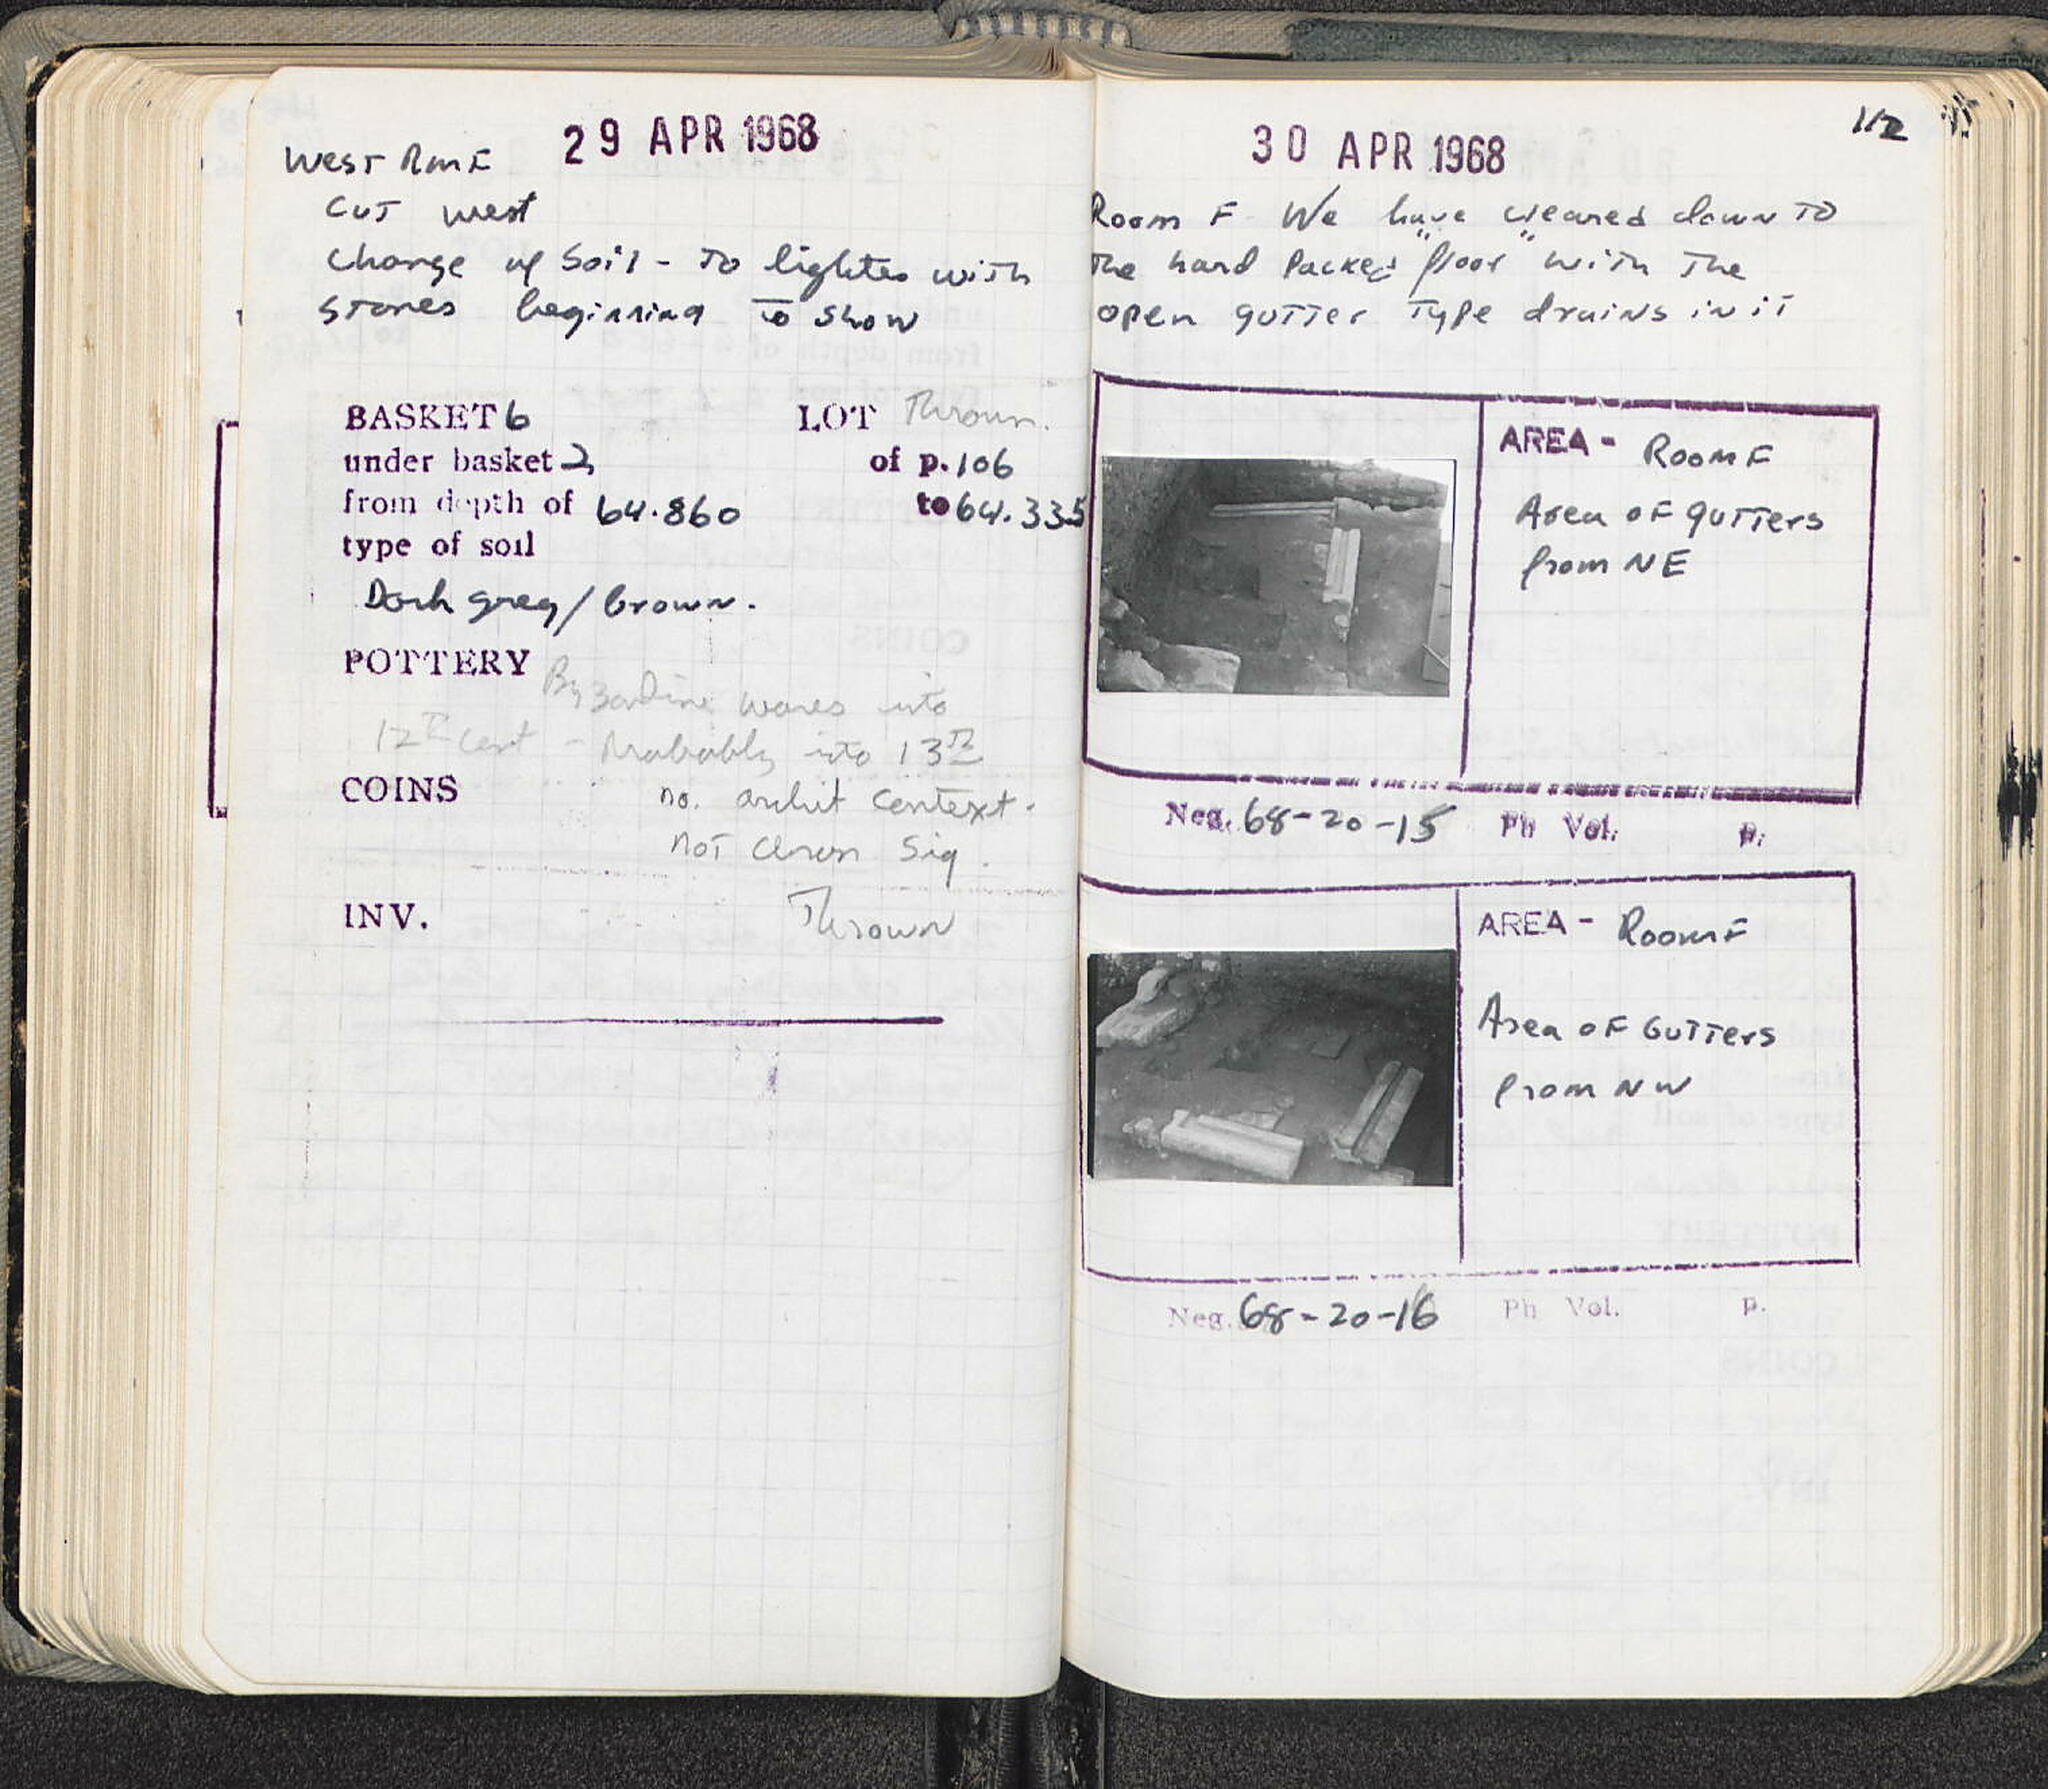 29 APR 1968
West Rm F
Cut west
Change of Soil - to lighter with
stones beginning to show
BASKET 6 LOT Thrown.
under basket 2 of p. 106
from depth of 64.860 to 64.335
type of soil
Dark grey/brown.
POTTERY Byzantine wares into
12th cent - Probably into 13th
COINS no. archit context.
not ceram sig.
INV. Thrown
112
30 APR 1968
Room F We have cleared down to
the hard packed "floor" with the
open gutter type drains in it
AREA - Room F
Area of gutters
from NE
Neg. 68-20-15 Ph Vol. p.
AREA - Room F
Area of Gutters
from NW
Neg. 68-20-16 Ph Vol. p.